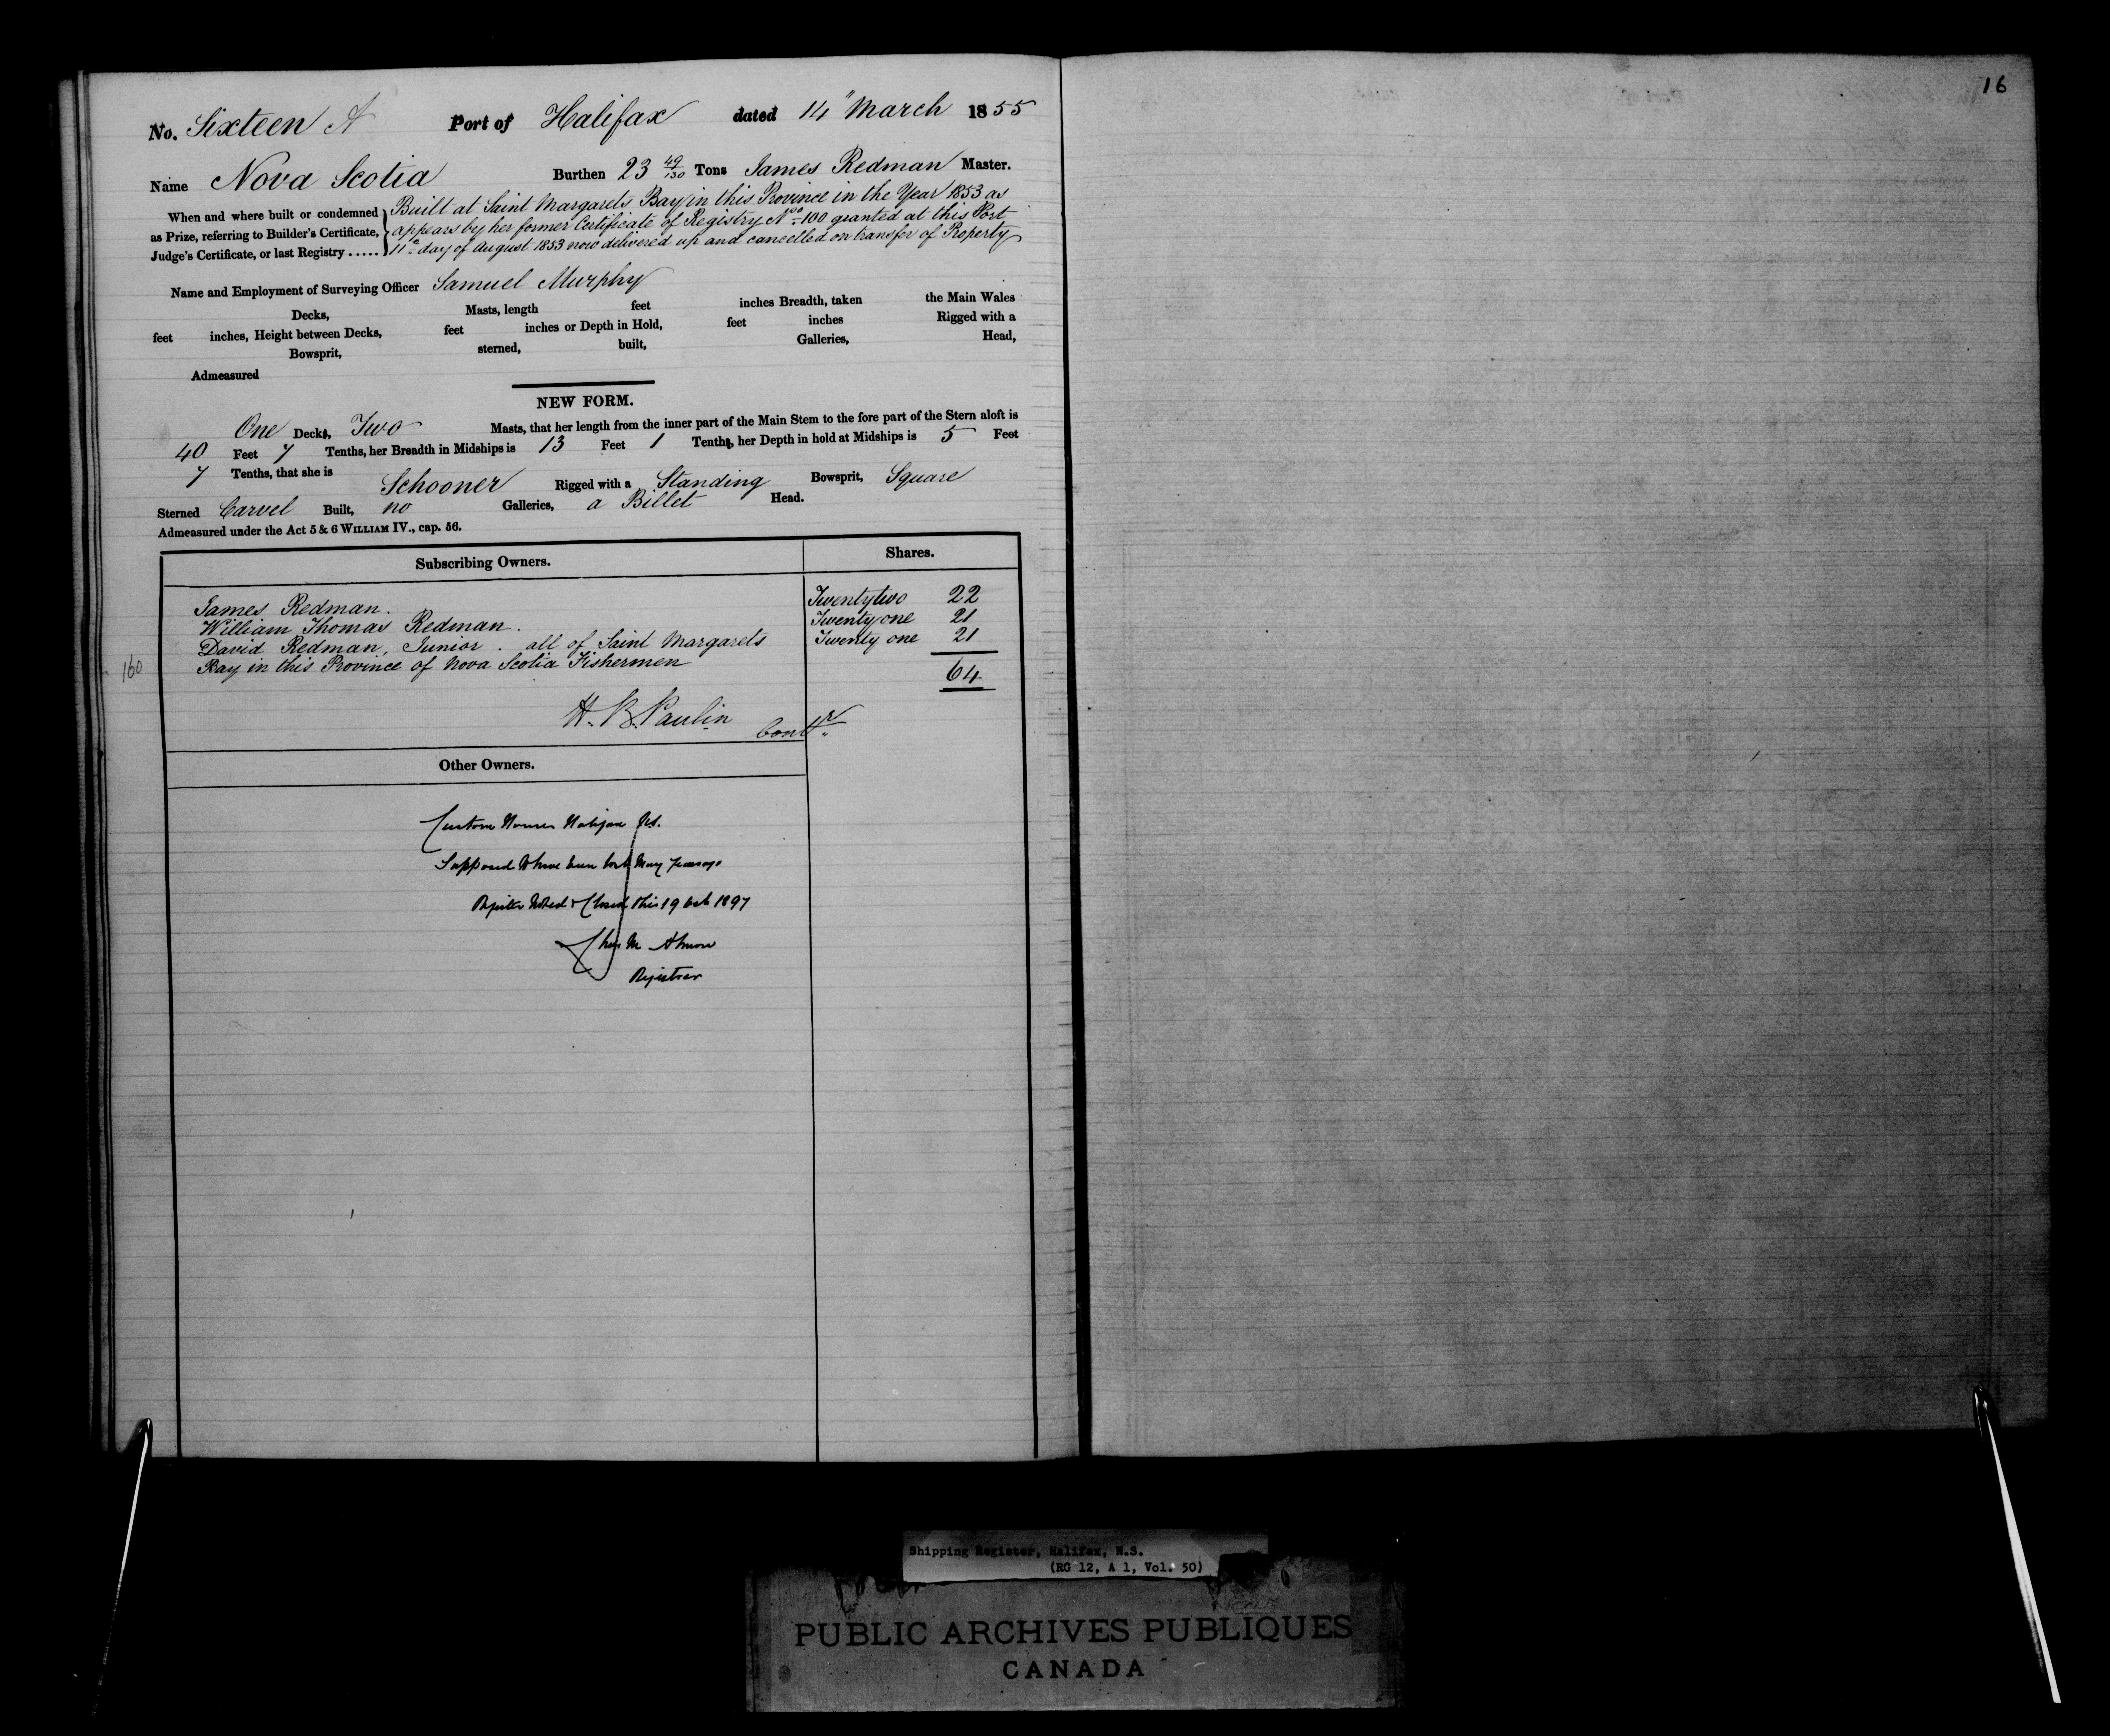 16
No. Sixteen A Port of Halifax dated 14" March 1855
Name Nova Scotia Burthen 23 49/130 Tons James Redman Master.
When and where built or condemned as Prize, referring to Builder's Certificate, Judge's Certificate, or last Registry .....
Built at Saint Margarets Bay in this Province in the Year 1853 as
appears by her former Certificate of Registry No. 100 granted at this Port
11th day of August 1853 now delivered up and cancelled on transfer of Property
Name and Employment of Surveying Officer Samuel Murphy
Decks, Masts, length feet inches Breadth, taken the Main Wales
feet inches, Height between Decks, feet inches or Depth in Hold, feet inches Rigged with a
Bowsprit, sterned, built, Galleries, Head,
Admeasured
NEW FORM.
One Decks, Two Masts, that her length from the inner part of the Main Stem to the fore part of the Stern aloft is
40 Feet 7 Tenths, her Breadth in Midships is 13 Feet 1 Tenths, her Depth in hold at Midships is 5 Feet
7 Tenths, that she is Schooner Rigged with a Standing Bowsprit, Square
Sterned Carvel Built, no Galleries, a Billet Head.
Admeasured under the Act 5 & 6 WILLIAM IV., cap. 56.
Subscribing Owners. Shares.
James Redman. Twenty two 22
William Thomas Redman. Twenty one 21
David Redman, Junior. all of Saint Margarets Twenty one 21
160 Bay in this Province of Nova Scotia Fishermen
64
H. B. Paulin
Contr
Other Owners.
Custom House Halifax NS.
Supposed to have been lost many years ago
Register Noted & Closed this 19 Oct 1897
Chas M Almon
Registrar
Shipping Register, Halifax, N.S.
(RG 12, A 1, Vol. 50)
PUBLIC ARCHIVES PUBLIQUES
CANADA